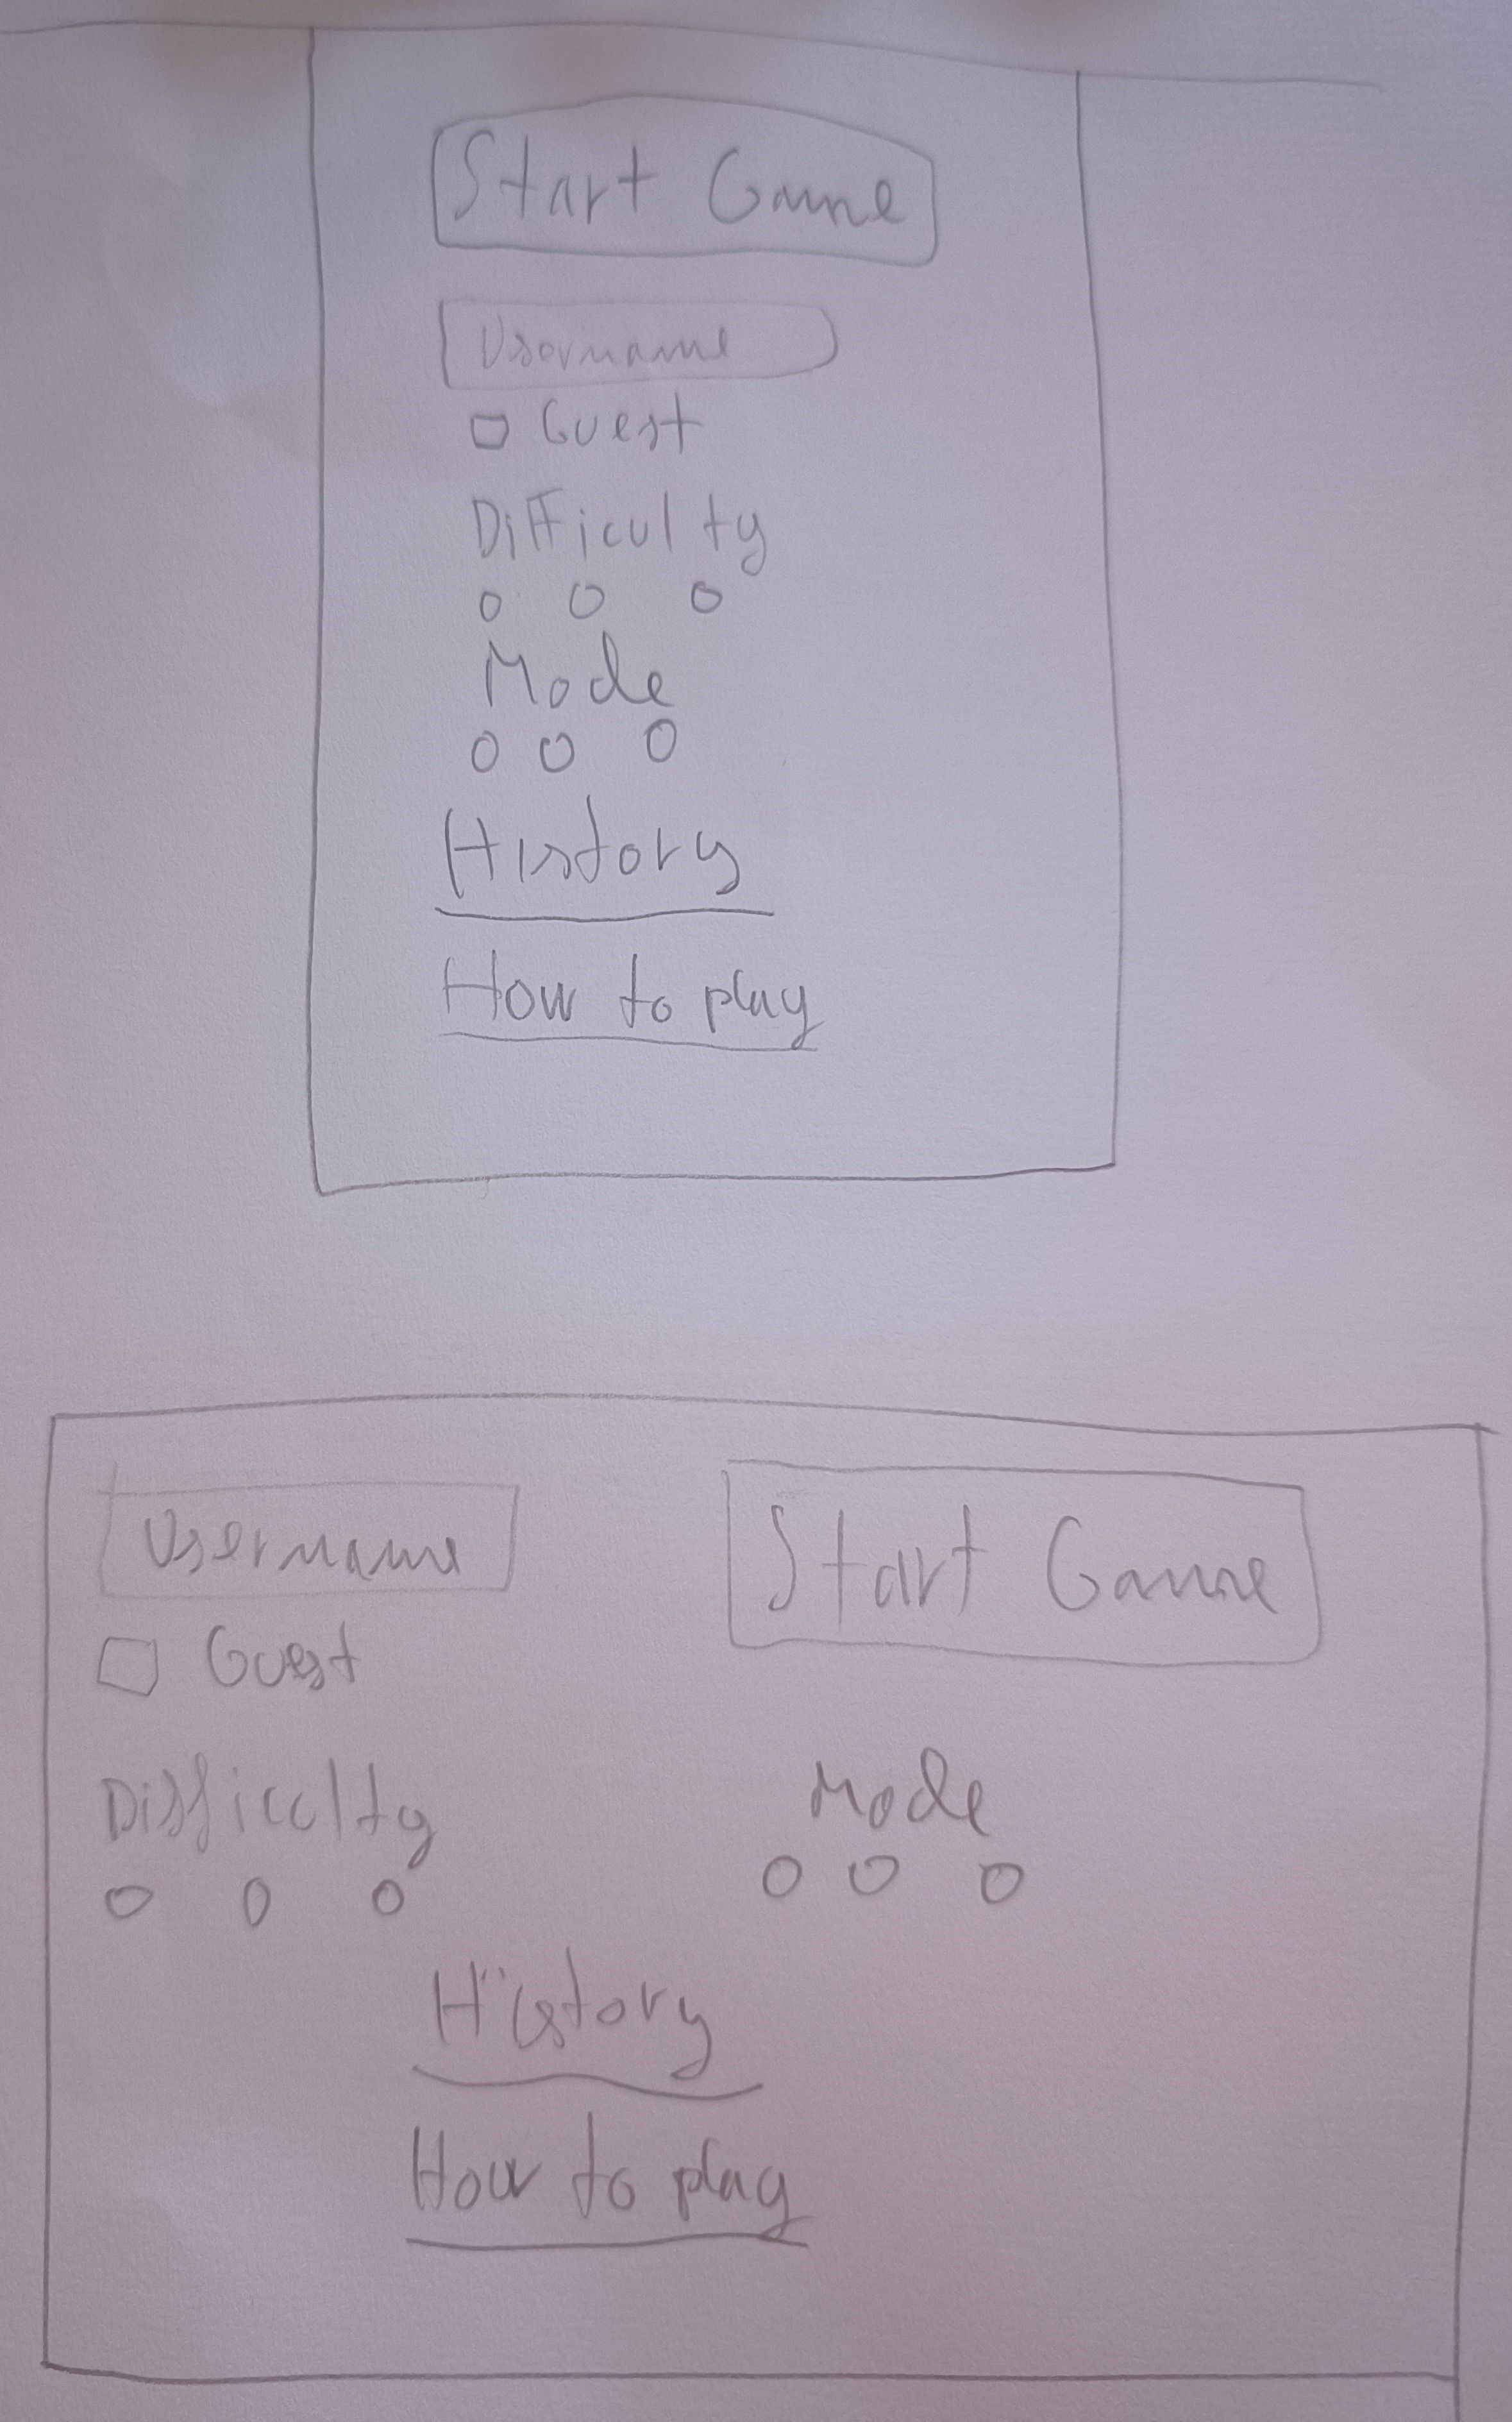 Start Game
Username
Guest
Difficulty
Mode
History
How to play
Username
Start Game
Guest
Difficulty
Mode
History
How to play